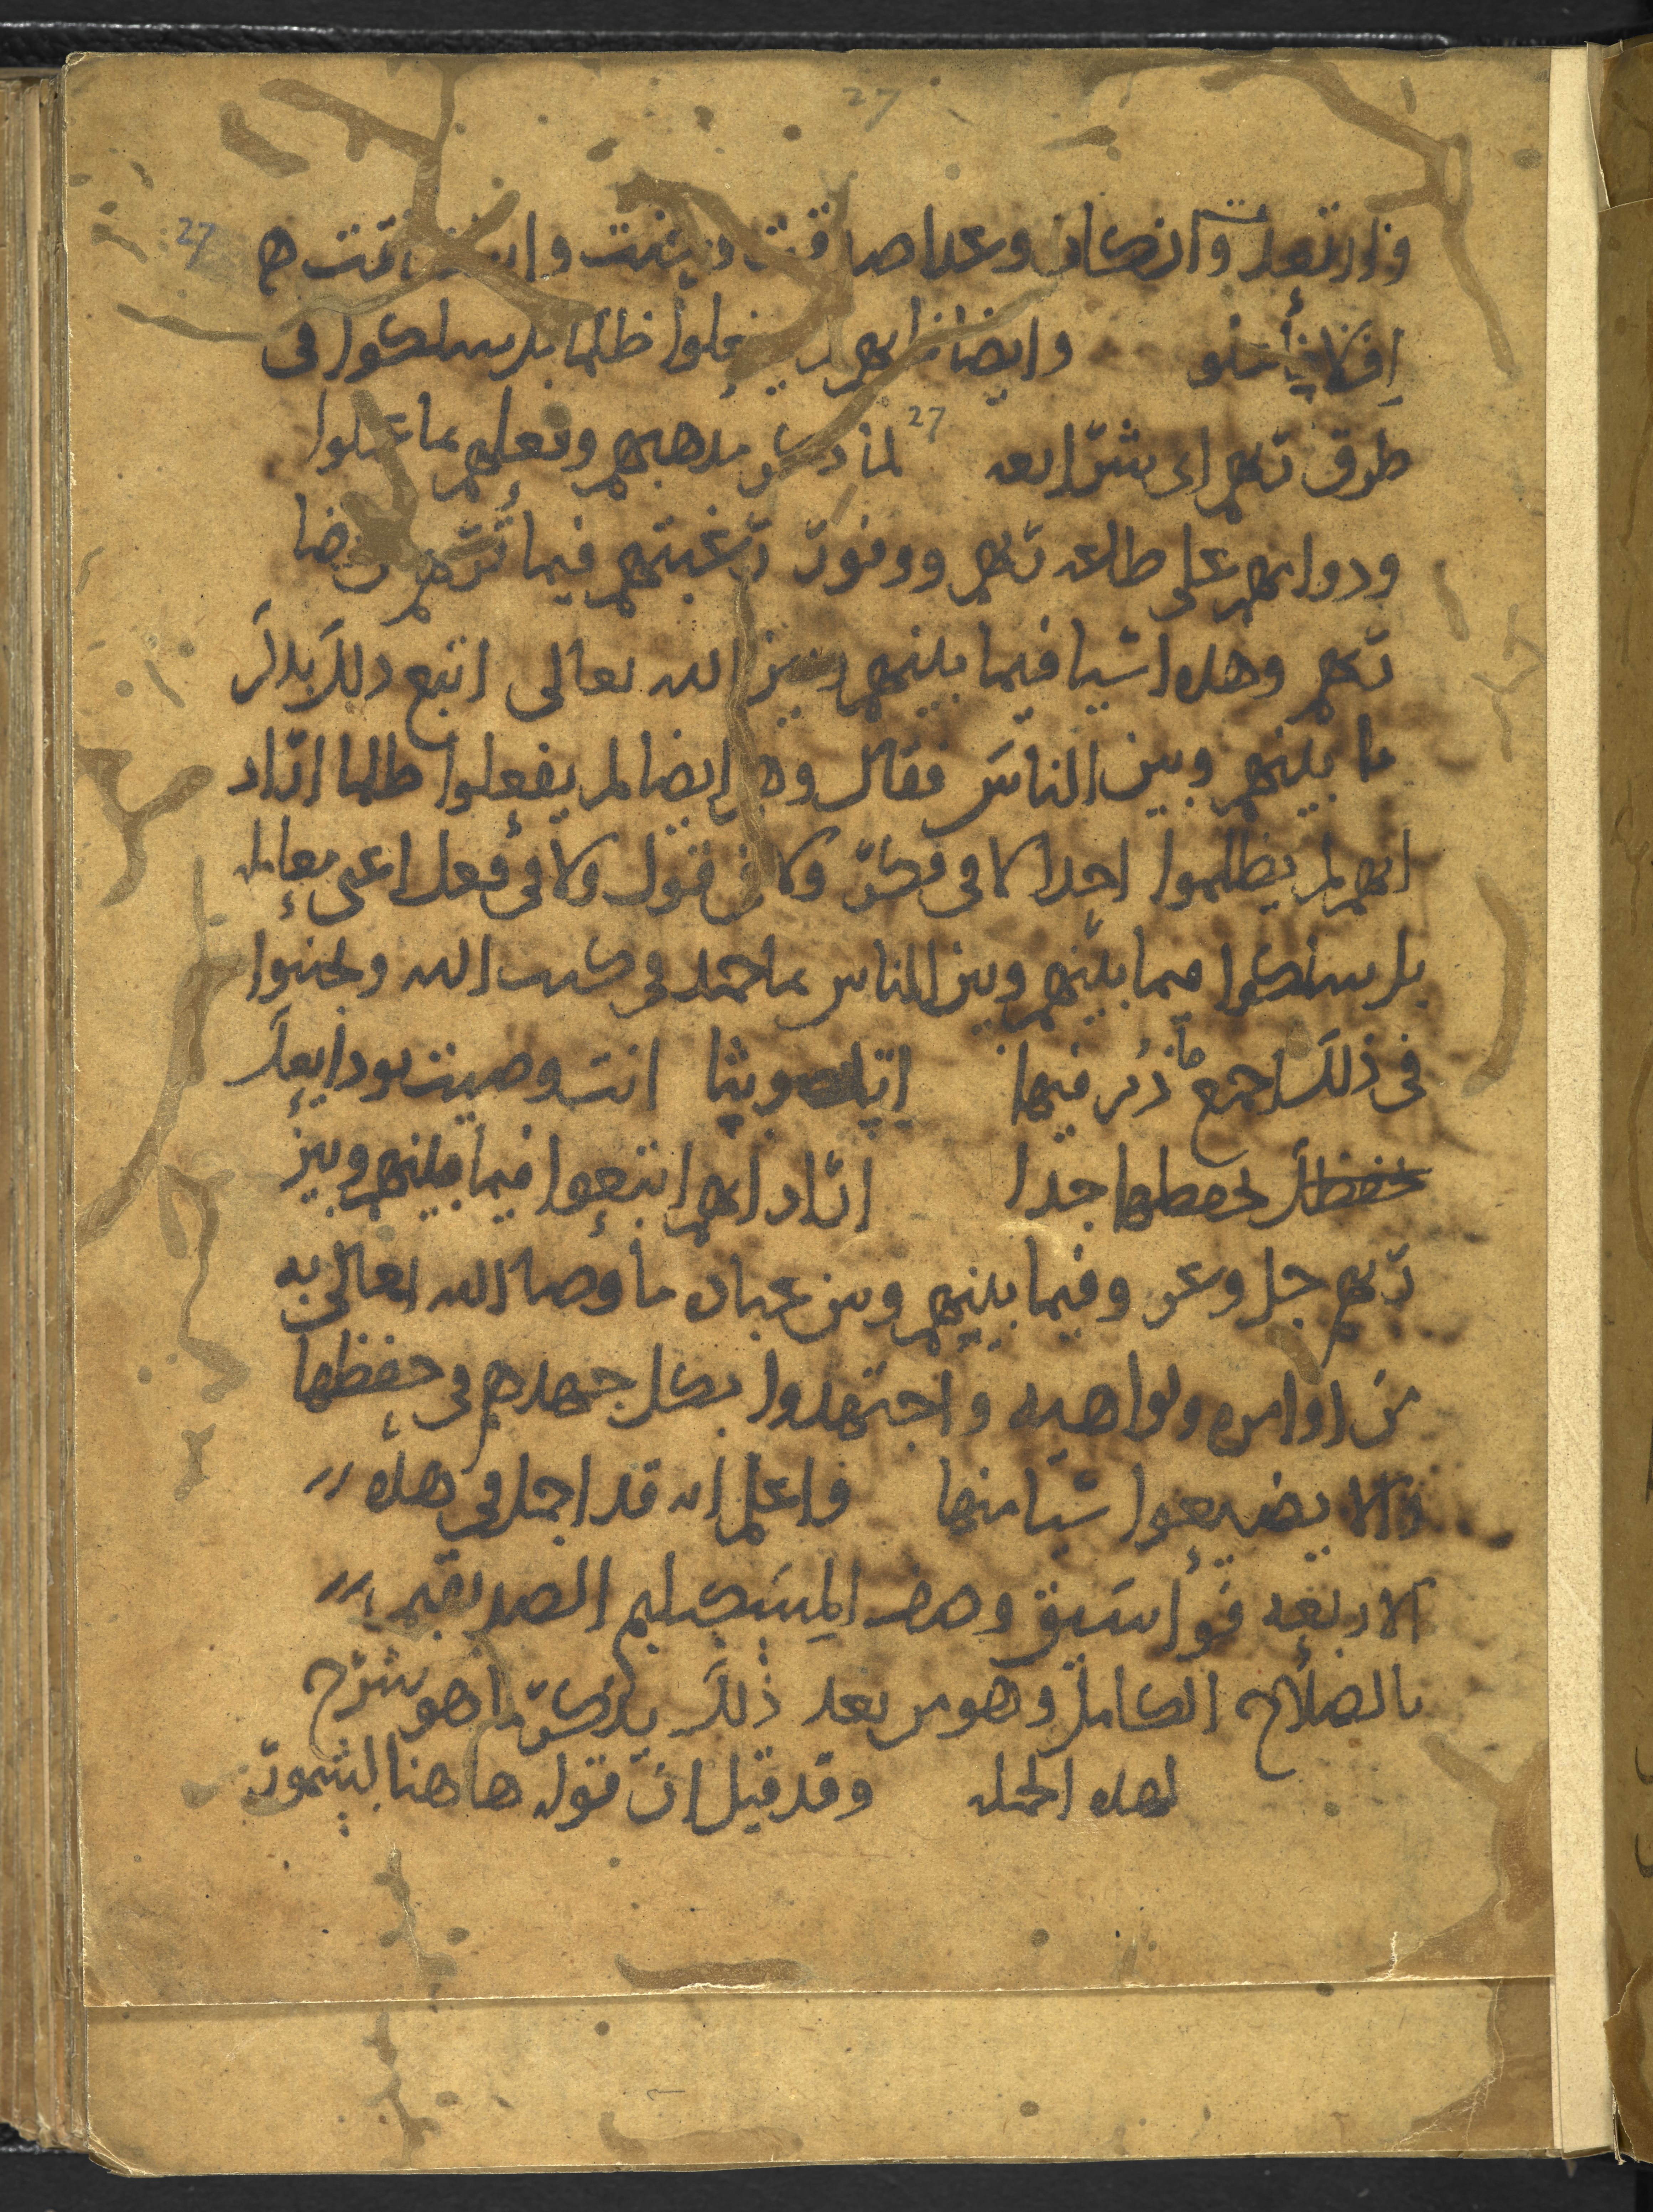 27
27
اف لا فاعلو وايضا فانهم لم يفعلوا ظلما بل سلكوا فى
27
طرق ربهم اى شرايعه لما ذكر مذهبهم وتعلهم بما عملوا
ودوامهم على طاعه ربهم ووفور رغبتهم فيما رضا
ربهم وهذه اشيا فيما بينهم وبين الله تعالى اتبع ذلك بذكر
ما بينهم وبين الناس فقال وهم ايضا لم يفعلوا ظلما اراد
انهم لم يظلموا احدا لا فى فكر ولا فى قول ولا فى فعل اعنى معامله
بل سلكوا فيما بينهم وبين الناس بما حمد فى كتب الله وتجنبوا
فى ذلك اجمع ما ذم فيها اتاه صويثا انت وصيت بودايعك
تحفظك تحفظها جدا اراد انهم اتبعوا فيما بينهم وبين
ربهم جل وعز وفيما بينهم وبين عباده ما وصا الله تعالى به
من اوامره ونواهيه واجتهدوا بكل جهدهم فى حفظها
والا يضيعوا شيا منها واعلم انه قد اجمل فى هذه
الاربعه فواسيق وصف المسكيليم الصديقيم
بالصلاح الكامل وهو من بعد ذلك يذكر ما هو شرح
لهذه الجمله وقد قيل ان قوله هاهنا لشمور